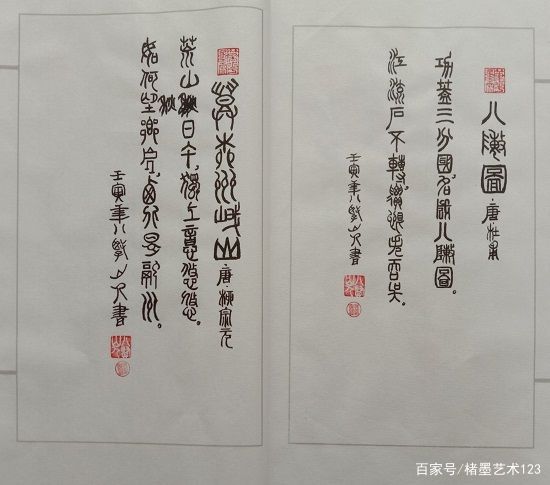 八陣圖 唐 杜甫
功蓋三分國，名成八陣圖。
江流石不轉，遺恨失吞吳。
壬寅年八山人書
登柳州峨山 唐 柳宗元
荒山秋日午，獨上意悠悠。
如何望鄉處，西北是融州。
壬寅年八山人書
百家号/楮墨艺术123